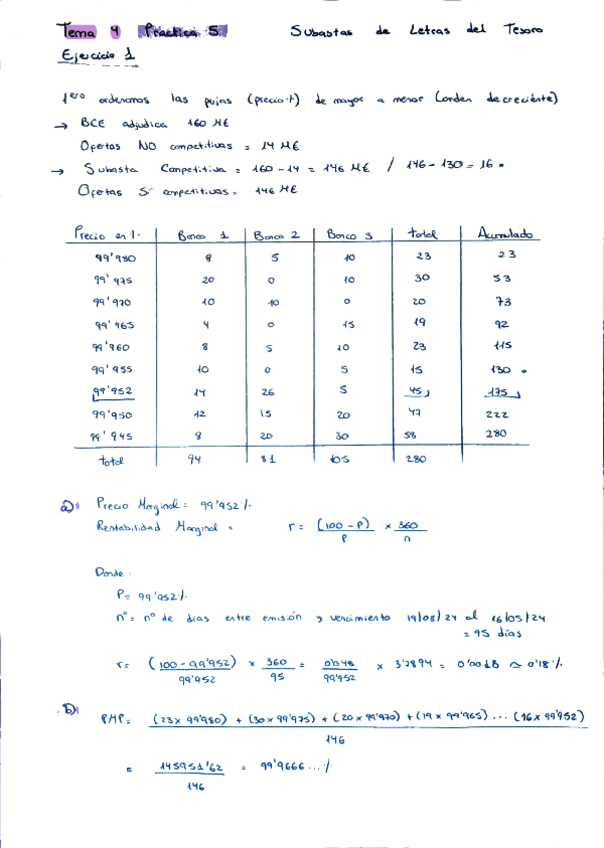 Tema 4 Práctica 5 Subastas de Letras del Tesoro
Ejercicio 1
1ero ordenamos las pujas (precio t) de mayor a menor (orden decreciente)
→ BCE adjudica 160 M€
Ofertas NO competitivas = 14 M€
→ Subasta Competitiva = 160 - 14 = 146 M€ / 146 - 130 = 16 •
Ofertas Si competitivas = 146 M€
Precio en %. Banco 1 Banco 2 Banco 3 total Acumulado
99'980 8 5 10 23 23
99'975 20 0 10 30 53
99'970 10 10 0 20 73
99'965 4 0 15 19 92
99'960 8 5 10 23 115
99'955 10 0 5 15 130 •
99'952 14 26 5 45 175
99'950 12 15 20 47 222
99'945 8 20 30 58 280
total 94 81 105 280
a) Precio Marginal = 99'952 %
Rentabilidad Marginal = r = (100 - P) / P × 360 / n
Donde
P = 99'952 %
nº = nº de días entre emisión y vencimiento 19/05/24 al 16/05/24
= 95 días
r = (100 - 99'952) / 99'952 × 360 / 95 = 0'048 / 99'952 × 3'7894 = 0'0018 ≈ 0'18 %
b) PMP = (23 x 99'980) + (30 x 99'975) + (20 x 99'970) + (19 x 99'965) ... (16 x 99'952) / 146
= 145951'62 / 146 = 99'9666... %